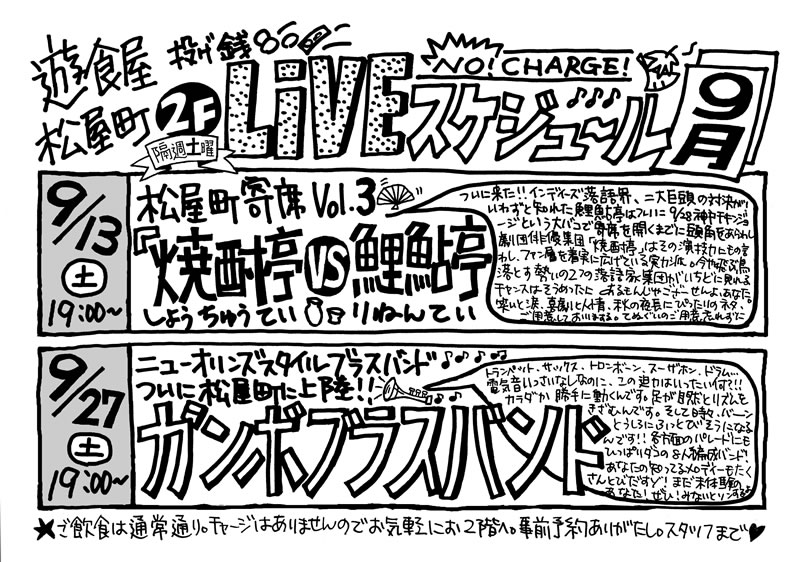 遊食屋 投げ銭 NO! CHARGE!
松屋町 2F LiVE スケジュール 9月
隔週土曜
9/13
土
19:00〜
松屋町寄席 Vol.3
『焼酎亭 VS 鯉鮎亭
しょうちゅうてい りねんてい
ついに来た!!インディーズ落語界、二大巨頭の対決が!
劇団俳優集団「焼酎亭」はその演技力にもの言
わし、ファン層を着実に広げている実力派。今飛ぶ鳥
落とす勢いの2つの落語家集団がいちどに見れる
チャンスはそうめったとあるもんじゃござーせんよ、あなた。
笑いと涙、喜劇と人情、秋の夜長にぴったりのネタ、
ご用意しておりまする。てぬぐいのご用意忘れずに
9/27
土
19:00〜
ニューオリンズスタイルブラスバンド
ついに松屋町に上陸!!
ガンボブラスバンド
トランペット、サックス、トロンボーン、スーザホン、ドラム…
電気音いっさいなしなのに、この迫力はいったい何?!!
カラダが勝手に動くんです。足が自然とリズムを
きざむんです。そして時々、バーン
とうしろにふっとびそうになる
んです!!各方面のパレードにも
ひっぱりダコの8人編成バンド!
あなたの知ってるメロディーもたく
さんとびだすゾ!まだ未体験の
あなた!ぜひ!みないとソンするよ
★ご飲食は通常通り。チャージはありませんのでお気軽にお2階へ。事前予約ありがたし。スタッフまで♥